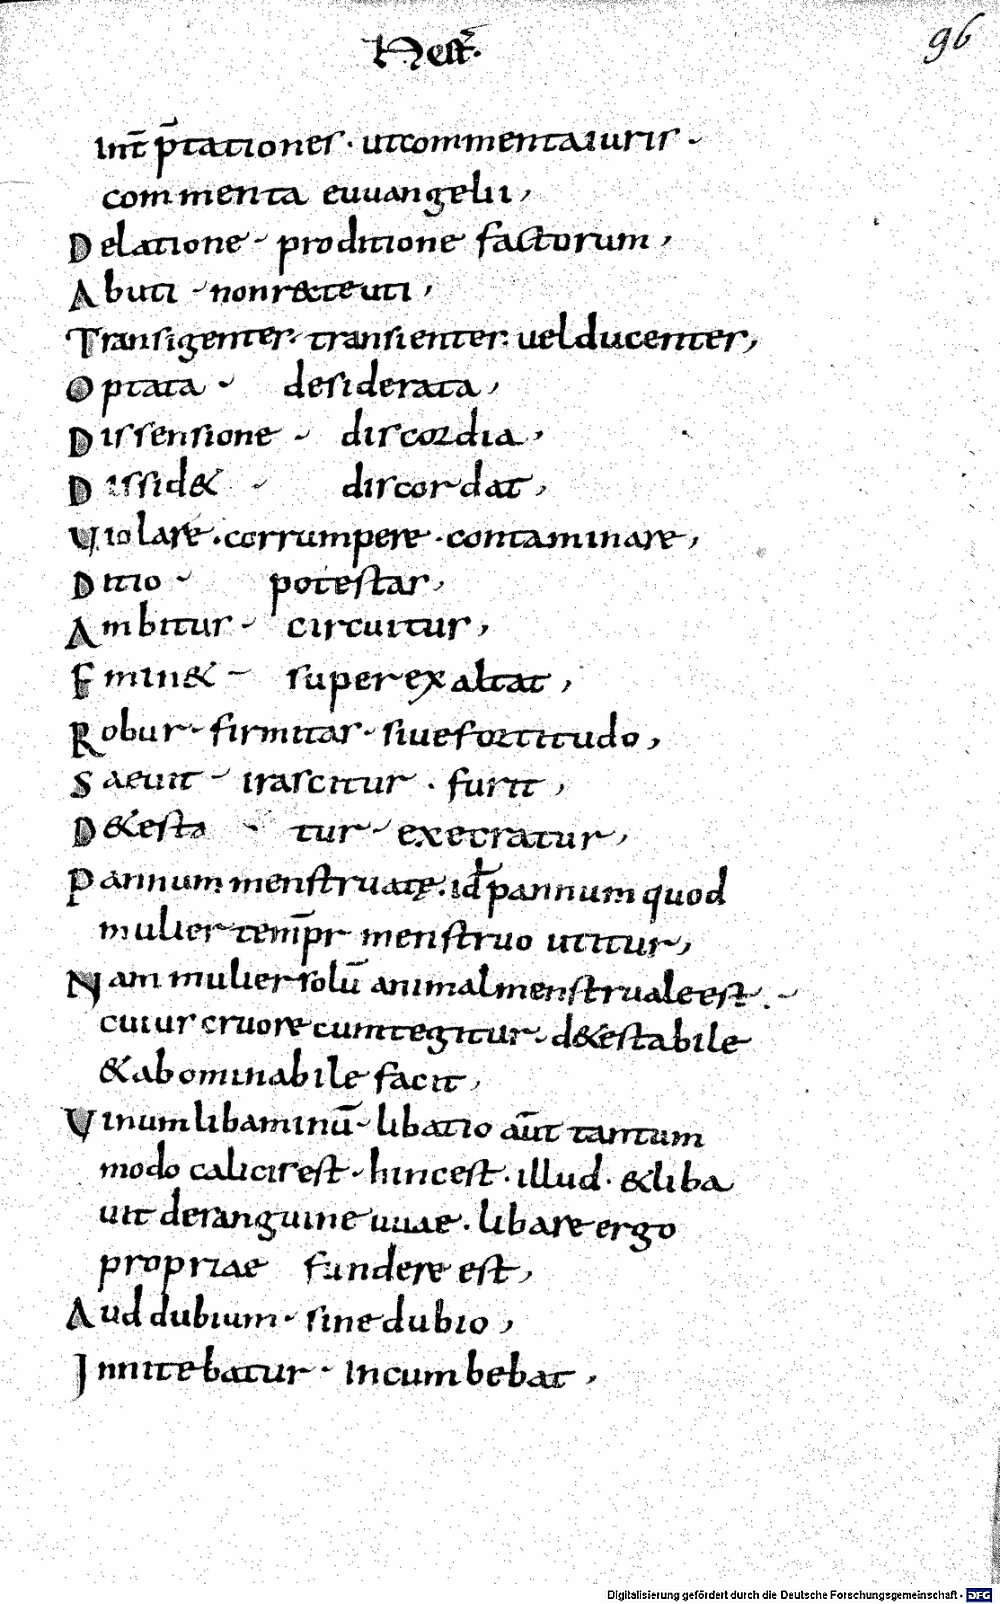 Hest̃.
96
Int̃ p̃tationes · ut commenta iuris ·
commenta euuangelii,
Delatione · proditione factorum,
Abuti · non recte uti,
Transigenter · transienter · uel ducenter,
Optata · desiderata,
Dissensione · discordia,
Dissid& · discordat,
Uiolare · corrumpere · contaminare,
Ditio · potestas,
Ambitur · circuitur,
Emin& · superexaltat,
Robur · firmitas · siue fortitudo,
Saeuit · irascitur · furit,
D&esta · tur · execratur,
Pannum menstruatę · id÷ pannum quod
mulier temp̄r menstruo utitur,
Nam mulier solū animal menstruale est ·
cuius cruore cum tegitur · d&estabile
& abominabile facit,
Uinum libaminū · libatio aūt tantum
modo calicis est · hinc est · illud · & liba
uit de sanguine uuae · libare ergo
propriae fundere est,
Aud dubium · sine dubio,
Innitebatur · incumbebat,
Digitalisierung gefördert durch die Deutsche Forschungsgemeinschaft - DFG